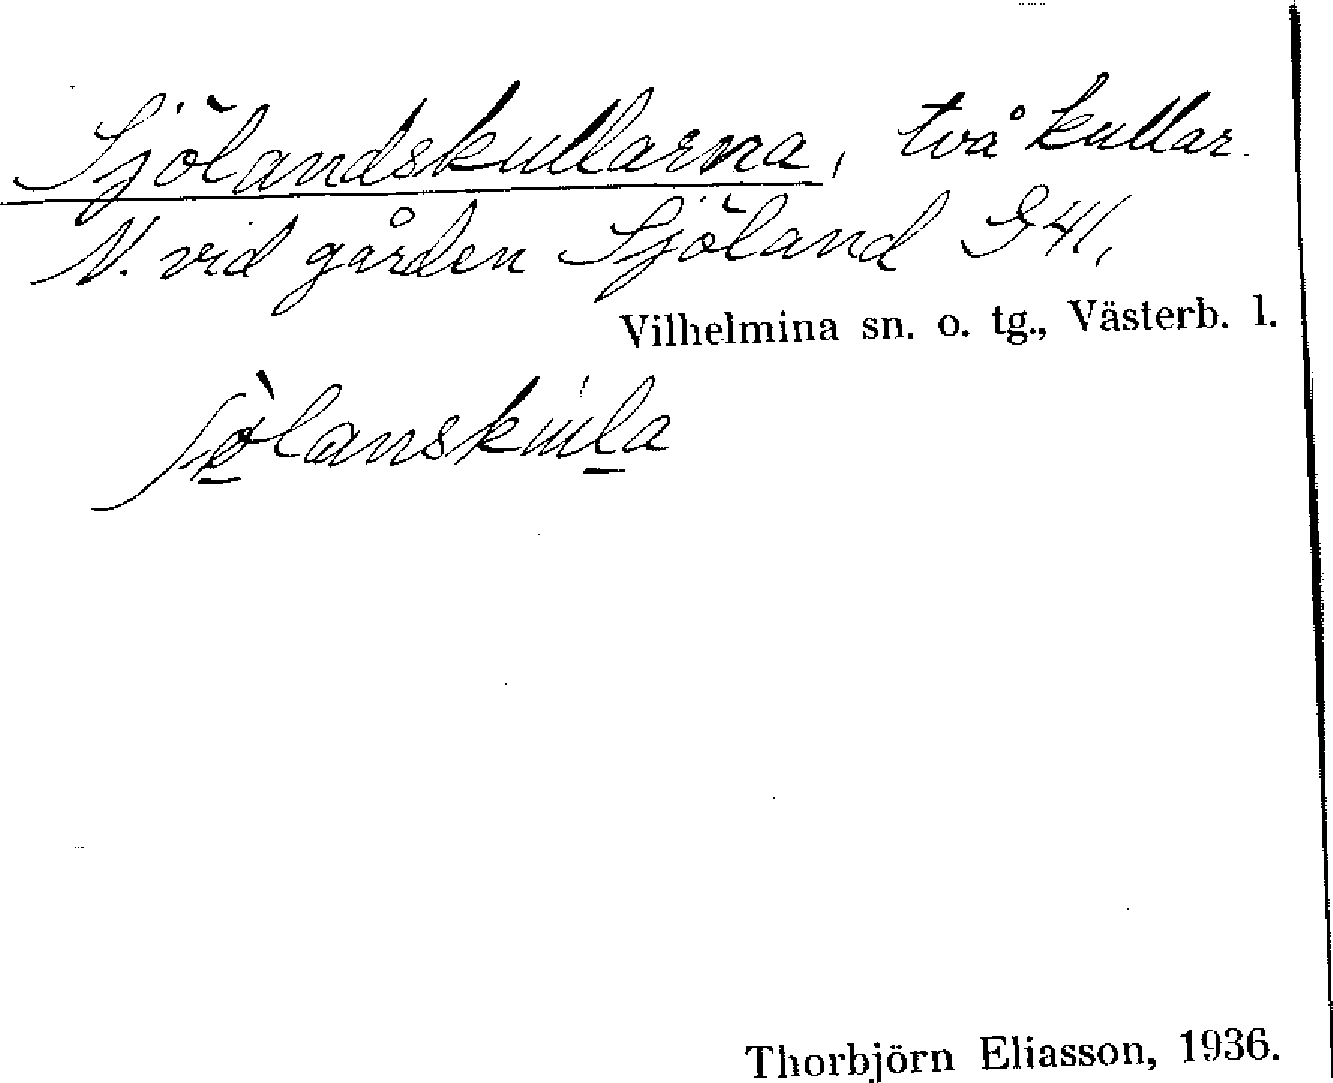 Sjölandskullarna, två kullar
N. vid gården Sjöland G41,
Vilhelmina sn. o. tg., Västerb. l.
Thorbjörn Eliasson, 1936.